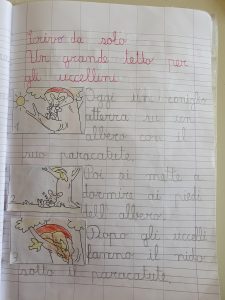 Scrivo da solo
Un grande tetto per
gli uccellini
Oggi un coniglio
atterra su un
albero con il
suo paracatute.
Poi si mette a
dormire ai piedi
dell albero.
Dopo gli uccelli
fanno il nido
sotto il paracatute.
2
3